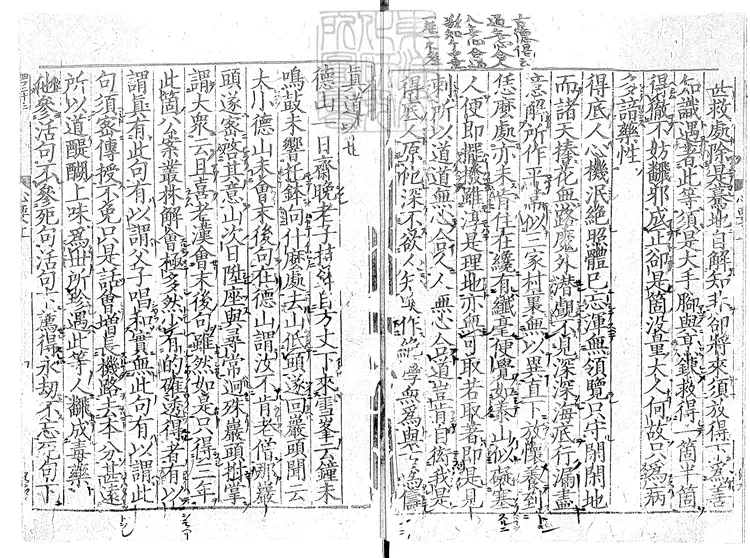 世救處除是驀地自解知非卻將來須放得下爲善
知識遇著此等須是大手腳與烹鍊救得一箇半箇
得徹不妨翻邪成正卻是箇没量大人何故只爲病
多諳藥性
得底人心機泯絶照體已忘渾無領覽只守閑閑地
而諸天捧花無路魔外潛覰不見深深海底行漏盡
意解所作平常似三家村裏無以異直下放懷養到
恁麼處亦未肯住在纔有纖毫便覺如泰山似礙塞
人便即擺撥雖淳是理地亦無可取若取著即是見
刺所以道道無心合人人無心合道豈肯自衒我是
得底人原他深不欲人知喚作絶學無爲與古爲儔
眞道人也
德山一日齋晚老子持鉢自方丈下來雪峯云鐘未
鳴鼓未響托鉢向什麼處去山低頭遂回巖頭聞云
大小德山未會末後句在德山謂汝不肯老僧那巖
頭遂密啓其意山次日陞座與尋常迥殊巖頭拊掌
謂大衆云且喜老漢會末後句雖然如是只得三年
此箇公案叢林解會極多然少有的確透得者有以
謂眞有此句有以謂父子唱和實無此句有以謂此
句須密傳授不免只是話會增長機路去本分甚遠
所以道醍醐上味爲世所珍遇此等人翻成毒藥
他參活句不參死句活句下薦得永劫不忘死句下